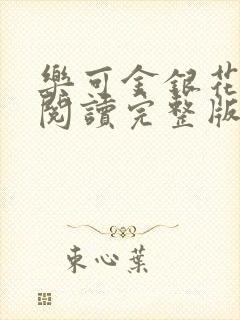 樂可金銀花
閱讀完整版
束心葉